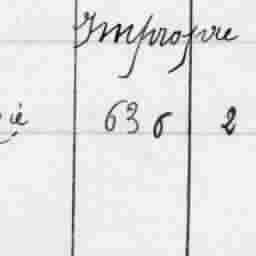 Impropre
ie 636 2